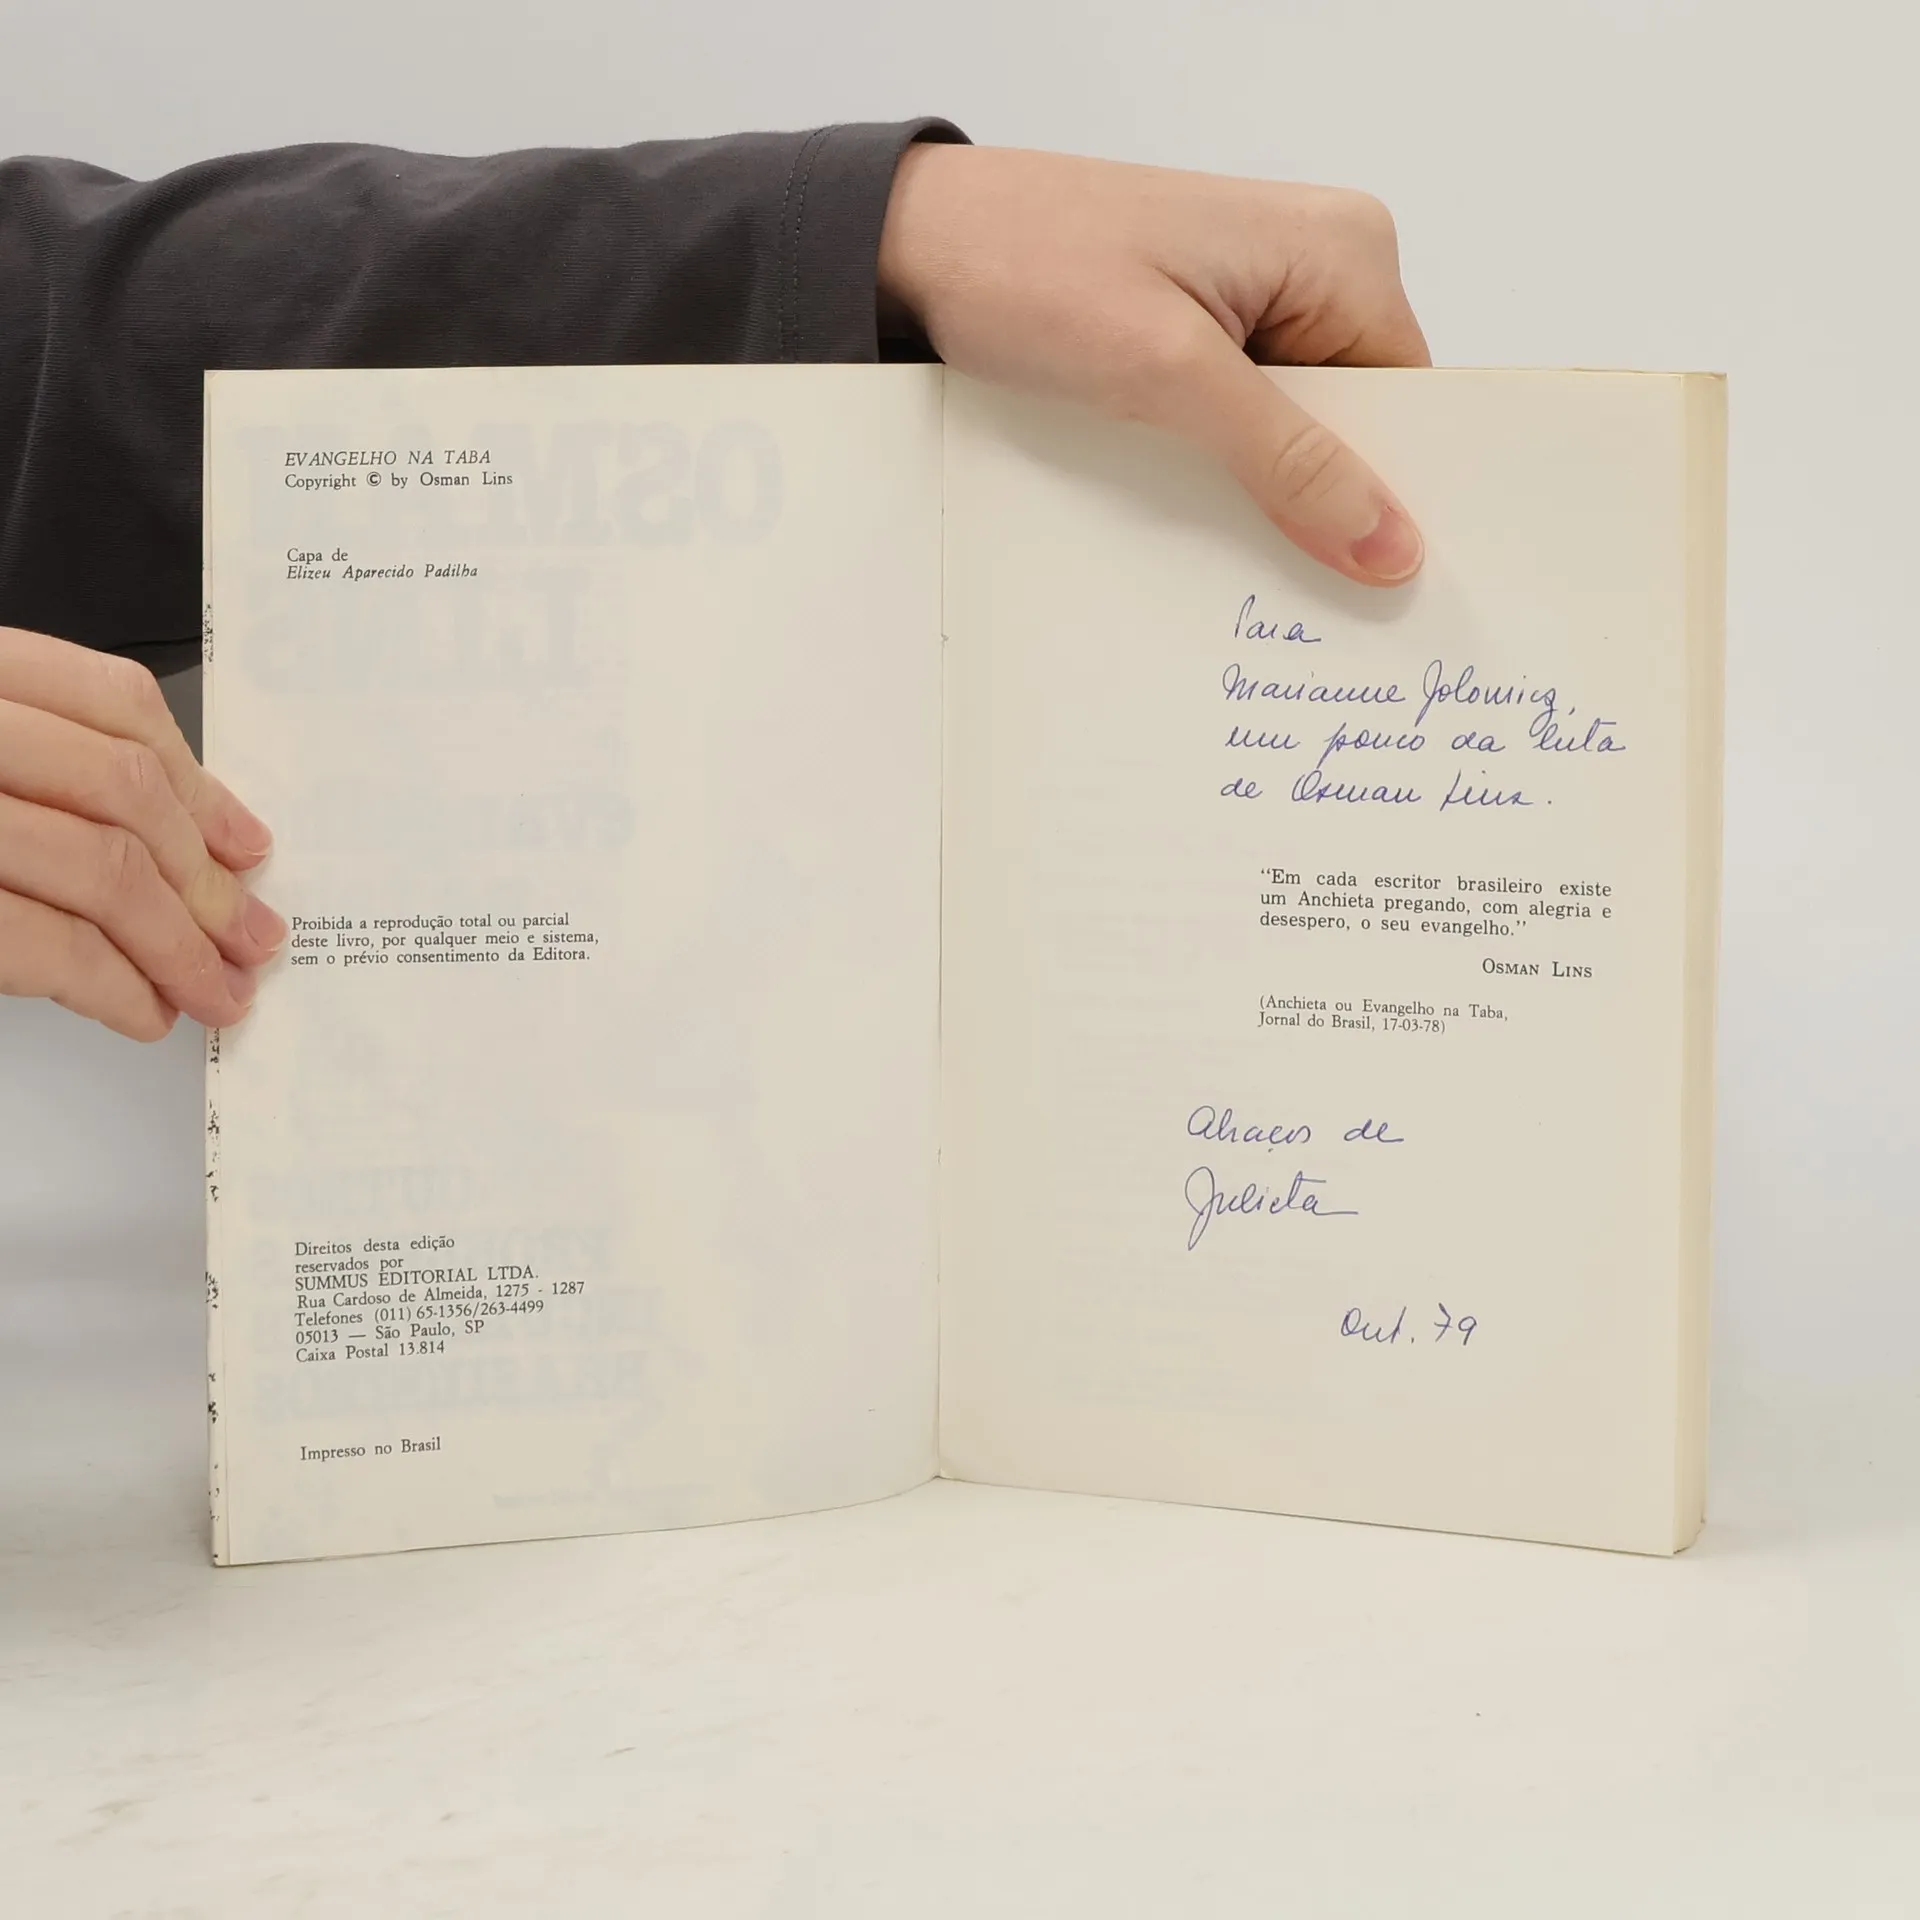 EVANGELHO NA TABA
Copyright © by Osman Lins
Capa de
Elizeu Aparecido Padilha
Proibida a reprodução total ou parcial
deste livro, por qualquer meio e sistema,
sem o prévio consentimento da Editora.
Direitos desta edição
reservados por
SUMMUS EDITORIAL LTDA.
Rua Cardoso de Almeida, 1275 - 1287
Telefones (011) 65-1356/263-4499
05013 — São Paulo, SP
Caixa Postal 13.814
Impresso no Brasil
Para
Marianne Jolowicz,
um pouco da luta
de Osman Lins.
“Em cada escritor brasileiro existe
um Anchieta pregando, com alegria e
desespero, o seu evangelho.”
OSMAN LINS
(Anchieta ou Evangelho na Taba,
Jornal do Brasil, 17-03-78)
Abraços de
Julieta
Out. 79